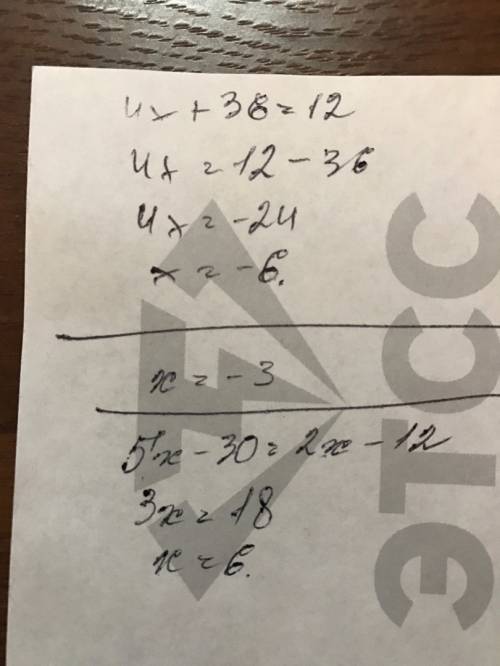 4x + 36 = 12
4x = 12 - 36
4x = -24
x = -6.
x = -3
5x - 30 = 2x - 12
3x = 18
x = 6.
ЭТСС